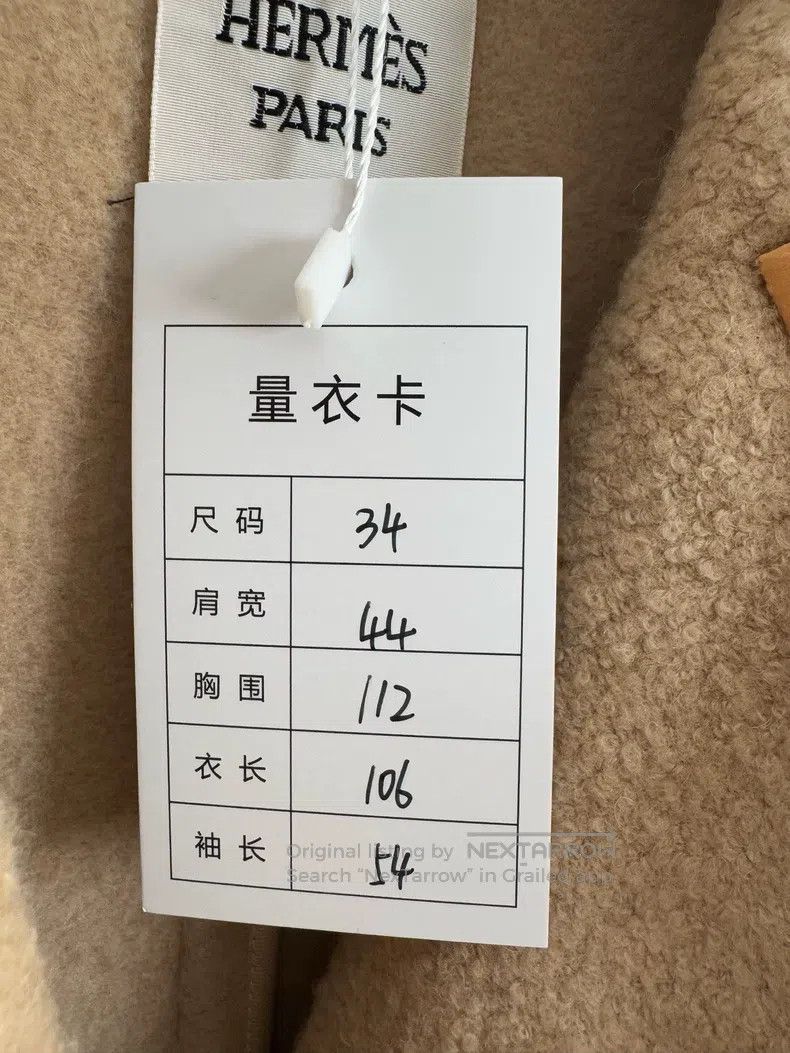 HERMÈS
PARIS
量衣卡
尺码 34
肩宽 44
胸围 112
衣长 106
袖长 54
Original listing by NEXTARROW
Search "NexTarrow" in Grailed app